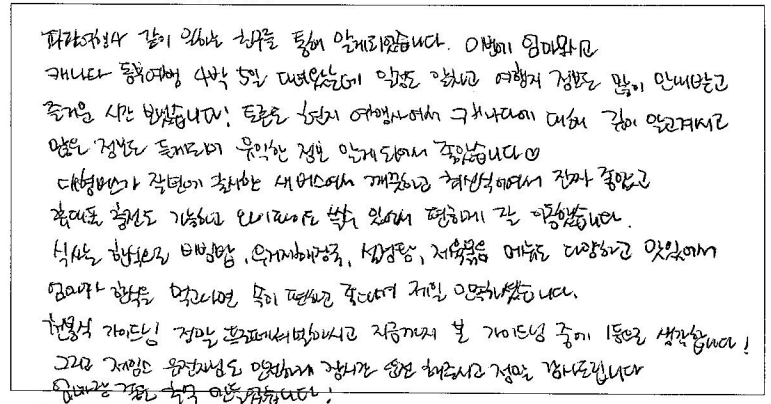 파랑여행사 같이 일하는 친구를 통해 알게되었습니다. 이번에 엄마와고
캐나다 동부여행 4박 5일 다녀왔는데 일정도 알차고 여행지 정보도 많이 안내받고
즐거운 시간 보냈습니다! 토론토 현지 여행사여서 캐나다에 대해 깊이 알고계시고
많은 정보도 들게되며 유익한 정보 알게되어서 좋았습니다♡
대형버스가 작년에 출시한 새버스여서 깨끗하고 최신식이여서 진짜 좋았고
휴대폰 충전도 가능하고 와이파이도 쓸수 있어서 편하게 잘 이동했습니다.
식사는 한식으로 비빔밥, 우거지해장국, 설렁탕, 제육볶음 메뉴도 다양하고 맛있어서
엄마가 한식을 먹고나면 속이 편하고 좋다며 제일 만족하셨습니다.
현봉식 가이드님 정말 프로페셔널하시고 지금까지 본 가이드님 중에 1등으로 생각합니다!
그리고 제임스 운전자님도 안전하게 장시간 운전 해주시고 정말 감사드립니다
엄마랑 좋은 추억 만들었습니다!